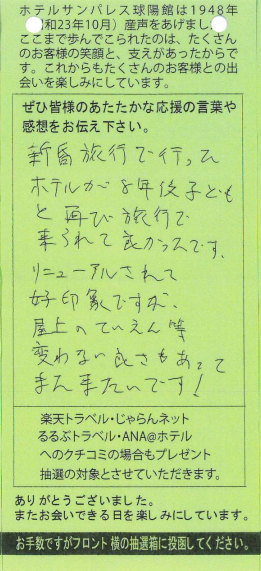 ホテルサンパレス球陽館は1948年
(昭和23年10月)産声をあげまし
ここまで歩んでこられたのは、たくさん
のお客様の笑顔と、支えがあったからで
す。これからもたくさんのお客様との出
会いを楽しみにしています。
ぜひ皆様のあたたかな応援の言葉や
感想をお伝え下さい。
新婚旅行で行った
ホテルが8年後子ども
と再び旅行で
来られて良かったです。
リニューアルされて
好印象ですが、
屋上のていえん等
変わない良さもあって
また来たいです!
楽天トラベル・じゃらんネット
るるぶトラベル・ANA@ホテル
へのクチコミの場合もプレゼント
抽選の対象とさせていただきます。
ありがとうございました。
またお会いできる日を楽しみにしています。
お手数ですがフロント横の抽選箱に投函してください。